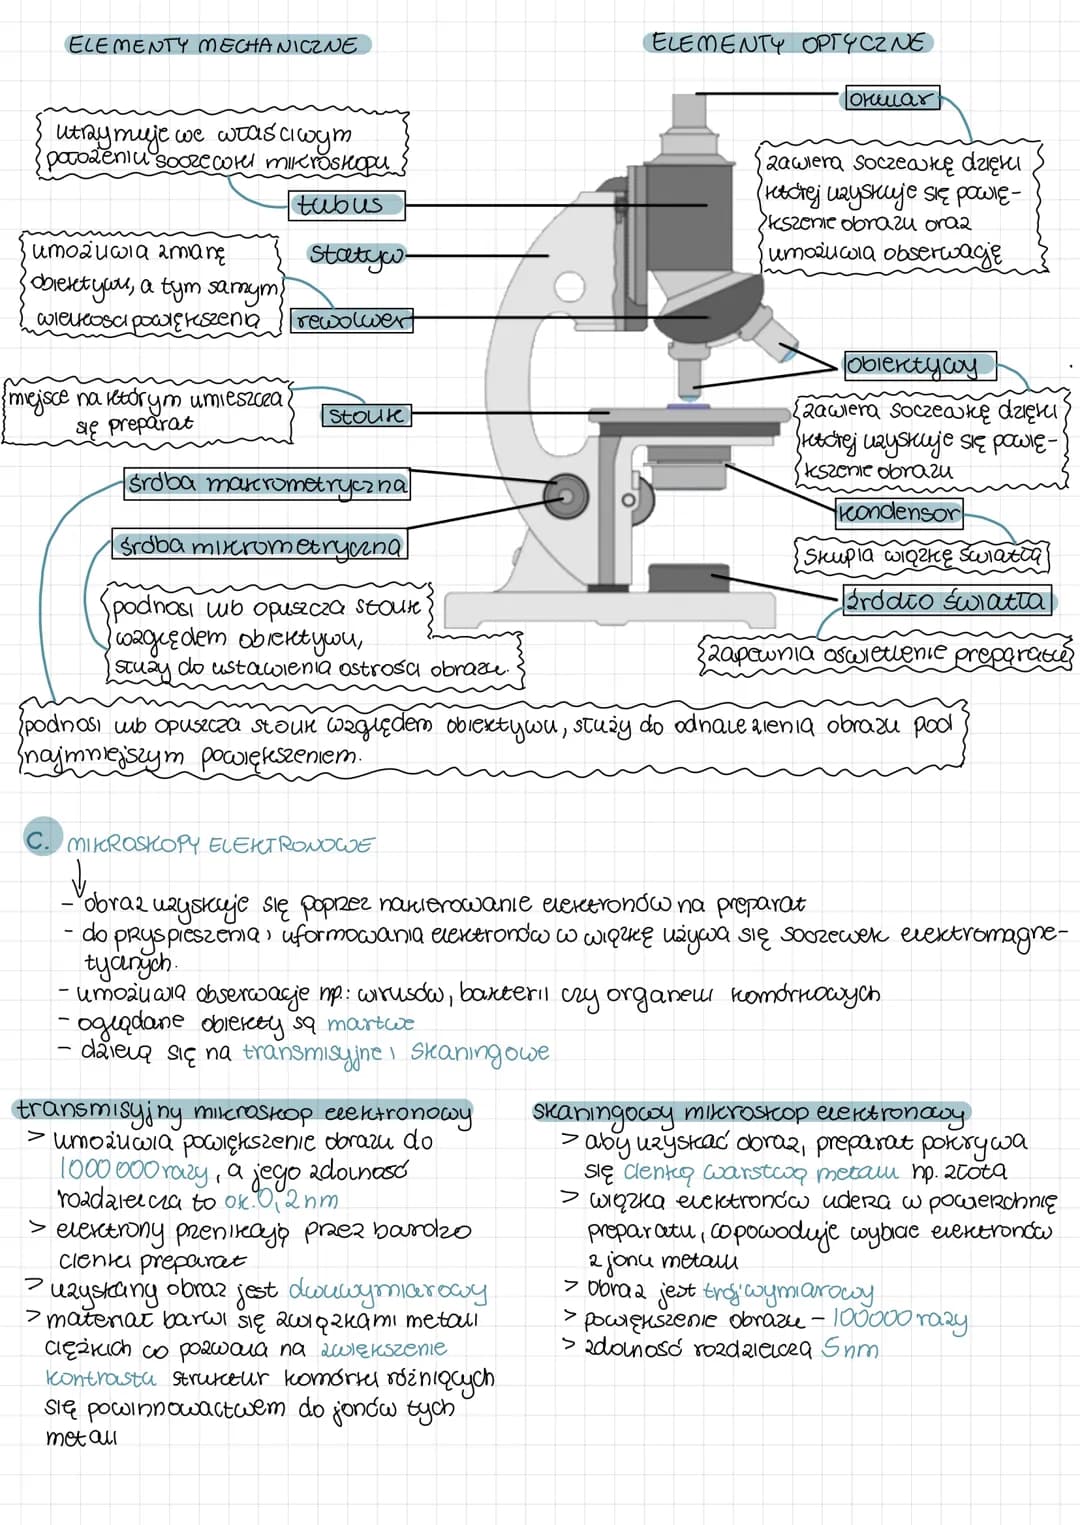 ELEMENTY MECHANICZNE
utrzymuje we właściwym
położeniu soczewki mikroskopu
tubus
umożliwia zmianę
obiektywu, a tym samym
wielkości powiększenia
statyw
rewolwer
miejsce na którym umieszcza
się preparat
stolik
śróba makrometryczna
śróba mikrometryczna
podnosi lub opuszcza stolik
względem obiektywu,
służy do ustawienia ostrości obrazu.
podnosi lub opuszcza stolik względem obiektywu, służy do odnalezienia obrazu pod
najmniejszym powiększeniem.
ELEMENTY OPTYCZNE
okular
zawiera soczewkę dzięki
której uzyskuje się powię-
kszenie obrazu oraz
umożliwia obserwację
obiektywy
zawiera soczewkę dzięki
której uzyskuje się powię-
kszenie obrazu
kondensor
skupia wiązkę światła
źródło światła
zapewnia oświetlenie preparatu
C. MIKROSKOPY ELEKTRONOWE
- obraz uzyskuje się poprzez nakierowanie elektronów na preparat
- do pryspieszenia i uformowania elektronów w wiązkę używa się soczewek elektromagne-
tycznych.
- umożliwia obserwacje np.: wirusów, bakterii czy organelli komórkowych
- oglądane obiekty są martwe
- dzielą się na transmisyjne i skaningowe
transmisyjny mikroskop elektronowy
> umożliwia powiększenie obrazu do
1000 000 razy, a jego zdolność
rozdzielcza to ok. 0,2nm
> elektrony przenikają przez bardzo
cienki preparat
> uzyskany obraz jest dwuwymiarowy
> materiał barwi się związkami metali
ciężkich co pozwala na zwiększenie
kontrastu struktur komórki różniących
się powinnowactwem do jonów tych
metali
skaningowy mikroskop elektronowy
> aby uzyskać obraz, preparat pokrywa
się cienką warstwą metalu np. złota
> wiązka elektronów uderza w powierzchnię
preparatu, co powoduje wybicie elektronów
z jonu metalu
> obraz jest trójwymiarowy
> powiększenie obrazu - 100000 razy
> zdolność rozdzielcza 5nm